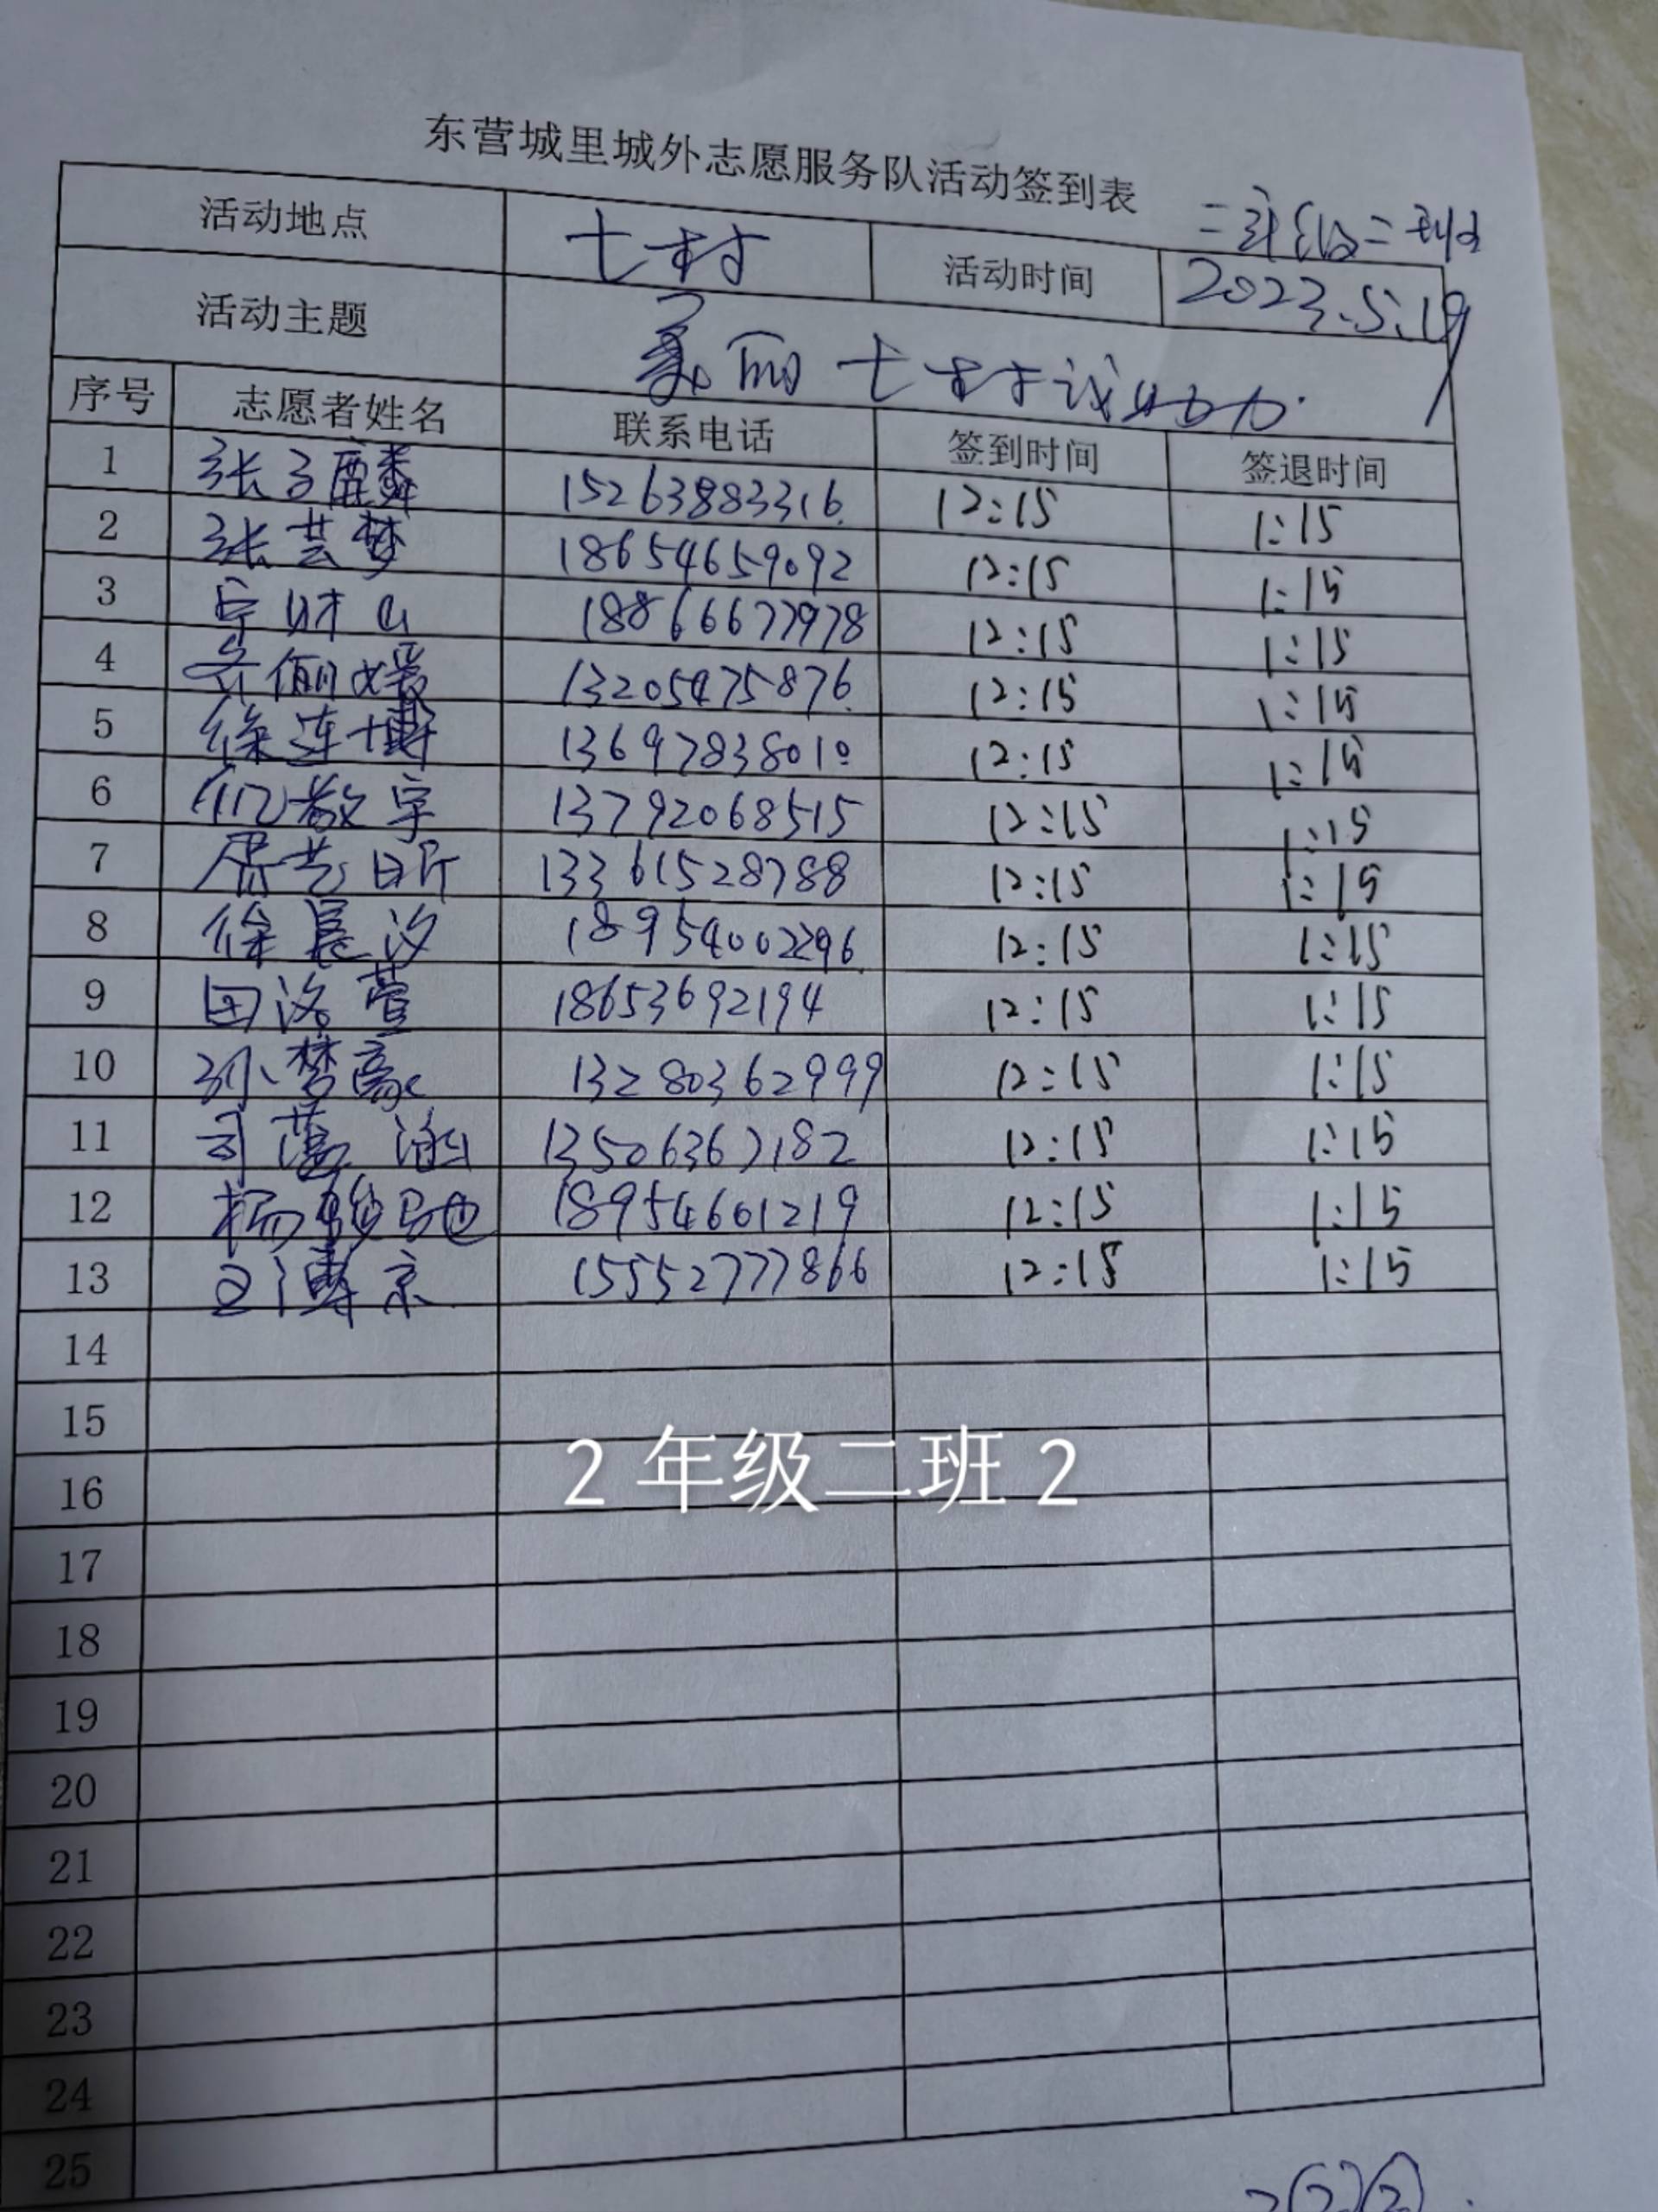 东营城里城外志愿服务队活动签到表
二年级二班
活动地点 七村 活动时间 2023.5.19
活动主题 美丽七村我助力
序号 志愿者姓名 联系电话 签到时间 签退时间
1 张子麟 15263883316 12:15 1:15
2 张芸梦 18654659092 12:15 1:15
3 18866677978 12:15 1:15
4 13205475876 12:15 1:15
5 徐连博 13697838010 12:15 1:15
6 13792068515 12:15 1:15
7 13361528788 12:15 1:15
8 徐晨汐 18954002296 12:15 1:15
9 田洛萱 18653692194 12:15 1:15
10 孙梦豪 13280362999 12:15 1:15
11 13506367182 12:15 1:15
12 杨骏驰 18954601219 12:15 1:15
13 15552777866 12:15 1:15
14
15
2年级二班2
16
17
18
19
20
21
22
23
24
25